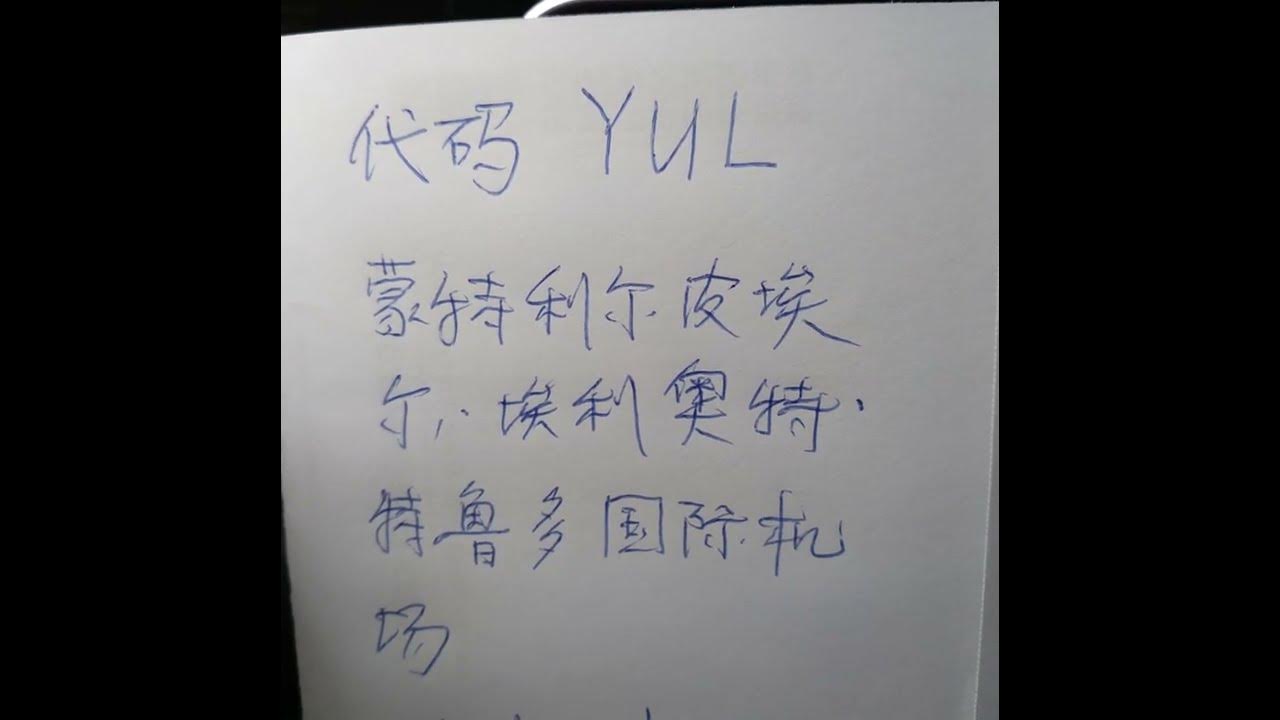 代码 YUL
蒙特利尔皮埃
尔·埃利奥特·
特鲁多国际机
场